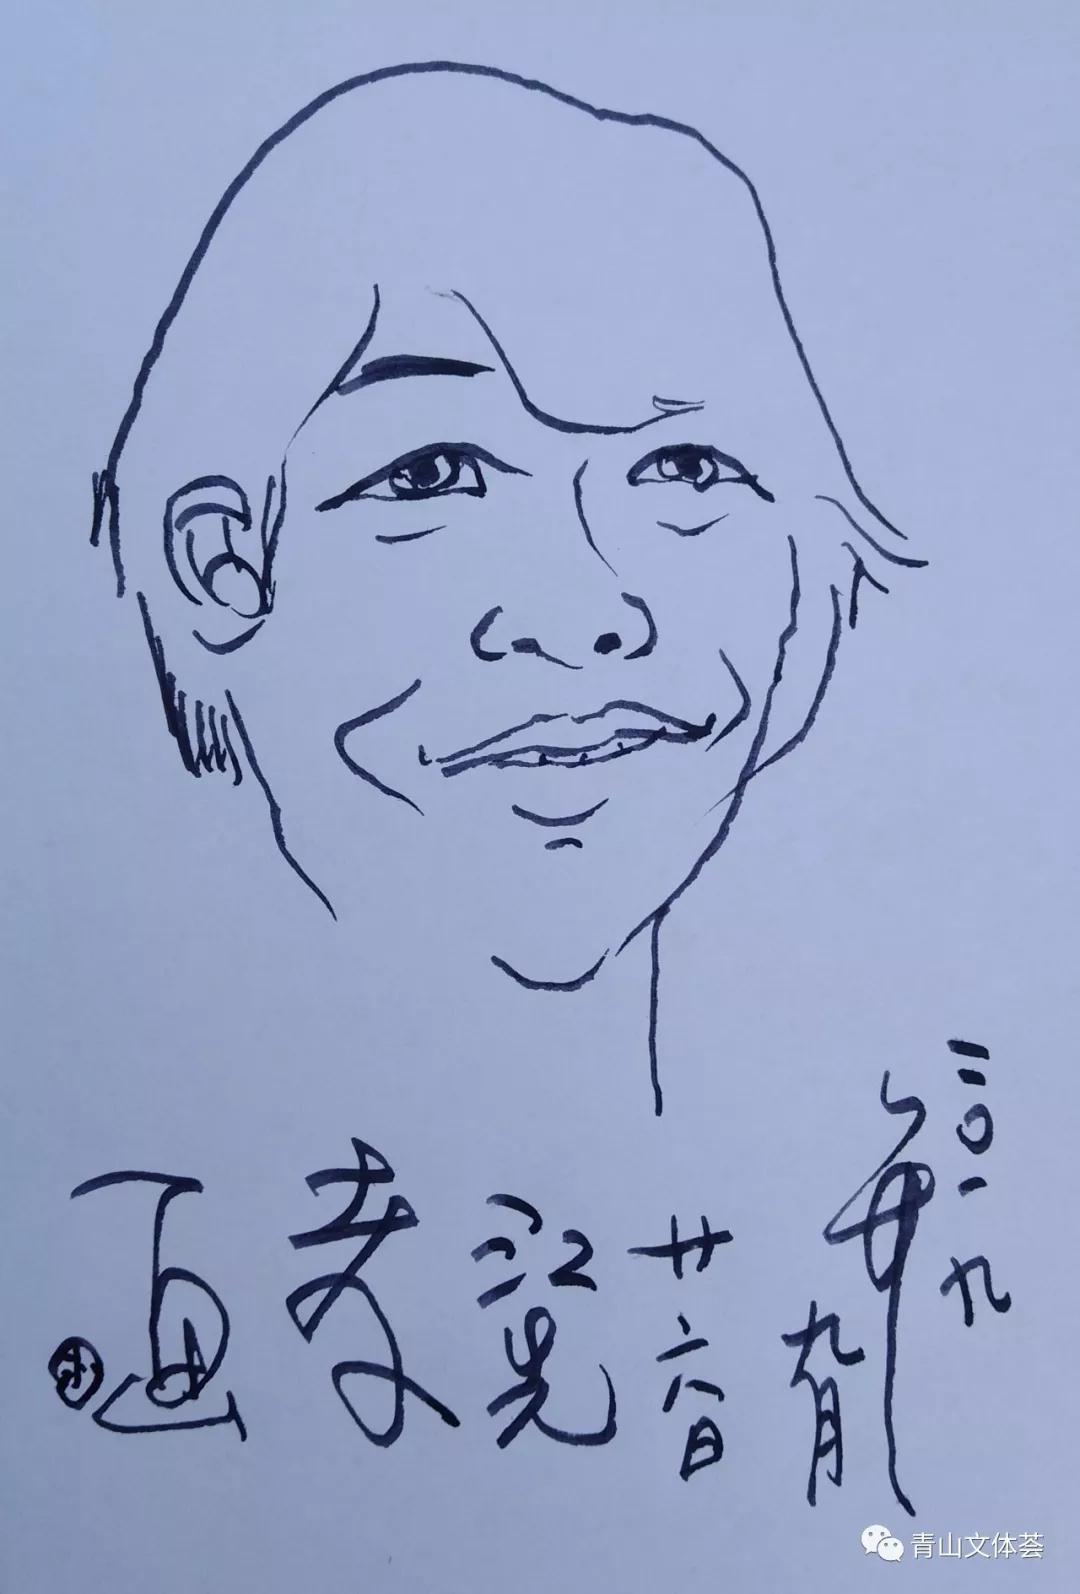 二〇一九
年
九月
廿六日
江先
孝
画
青山文体荟